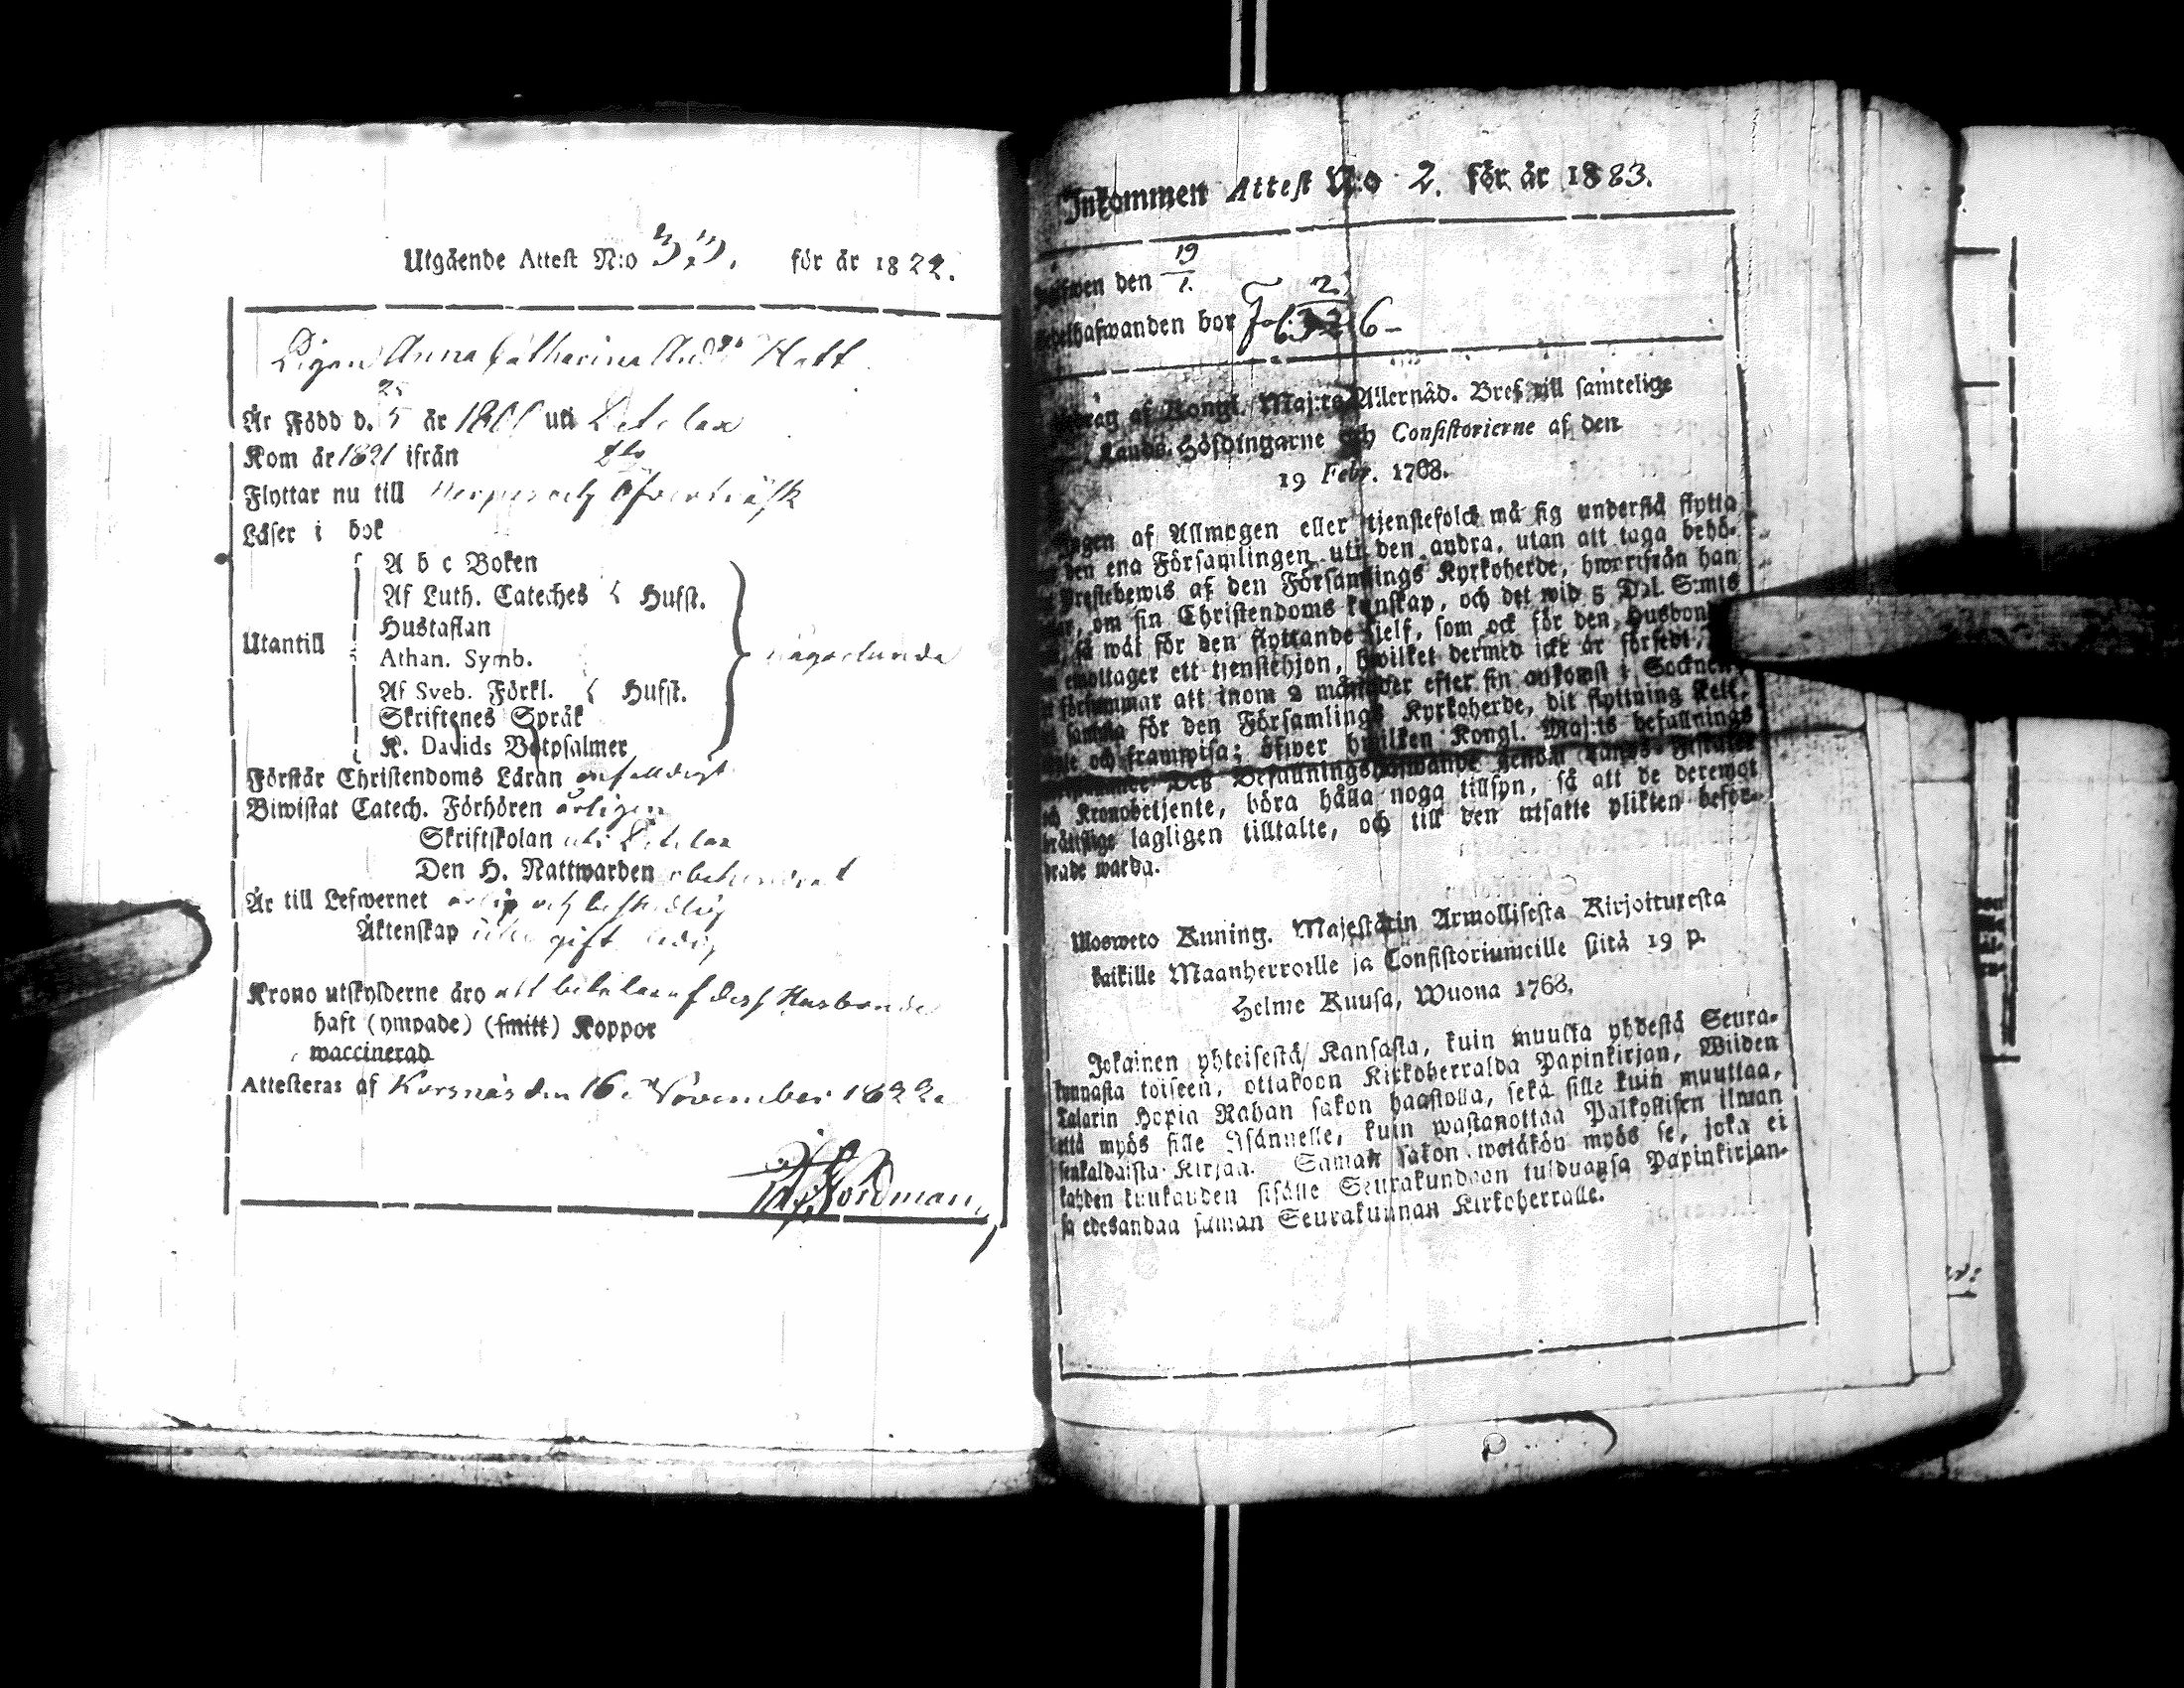 Utgående Attest N:o 33. för år 1822.
Pigan Anna Catharina And:dr Hatt
Är Född d. 25/5 år 1801 uti Petelax
Kom år 1821 ifrån
Flyttar nu till Öfverträsk
Läser i bok
Utantill
A b c Boken
Af Luth. Cateches { Husst.
Hustaflan
Athan. Symb.
Af Sveb. Förkl. { Husst.
Skriftenes Språk
K. Davids Botpsalmer
någorlunda
Förstår Christendoms Läran enfalldigt
Biwistat Catech. Förhören årligen
Skriftskolan uti Petelax
Den H. Nattwarden obehindrat
Är till Lefwernet ärlig och beskedlig
Äktenskap icke gift ledig
Krono utskylderne äro att betalas af dess Husbonde
haft (ympade) (smitt) Koppor
waccinerad
Attesteras af Korsnäs den 16 November 1822.
Nordman
Inkommen Attest N:o 2. för år 1823.
den 19/1.
bor
af Kongl. Maj:ts Allernåd. Bref till samtelige
Lands-Höfdingarne och Consistorierne af den
19 Febr. 1768.
Ingen af Allmogen eller tjenstefolck må sig understå flytta
den ena Församlingen uti den andra, utan att taga behö-
Prestebewis af den Församlings Kyrkoherde, hwarifrån han
om sin Christendoms kunskap, och det wid 5 Dal. S:mts
så wäl för den flyttande sjelf, som ock för den Husbon
emottager ett tjenstehjon, hwilket dermed icke är försedt,
försummar att inom 2 månader efter sin ankomst i Socknen
samma för den Församlings Kyrkoherde, dit flyttning skett,
och framwisa; öfwer hwilken Kongl. Maj:ts befallnings
Dess Befallningshafwande genom Lands-Fiskaler
och Kronobetjente, böra hålla noga tillsyn, så att de deremot
brättslige lagligen tilltalte, och till den utsatte plikten befor-
drade warda.
Uloswero Kuning. Majestätin Armollisesta Kirjoituxesta
kaikille Maanherroille ja Consistoriumeille siitä 19 p.
Helme Kuusa, Wuona 1768.
Jokainen yhteisestä Kansasta, kuin muutta yhdestä Seura-
kunnasta toiseen, ottakoon Kirkoherralda Papinkirjan, Wiiden
Talarin Hopia Rahan sakon haastolla, sekä sille kuin muuttaa,
että myös sille Isännelle, kuin wastanottaa Palkollisen ilman
senkaldaista Kirjaa. Saman sakon wetäkön myös se, joka ei
kahden kuukauden sisälle Seurakundaan tulduansa Papinkirjan-
sa edesandaa saman Seurakunnan Kirkoherralle.